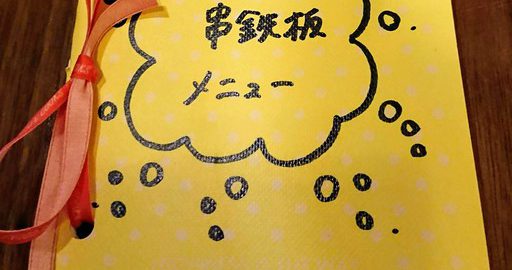 串鉄板
メニュー